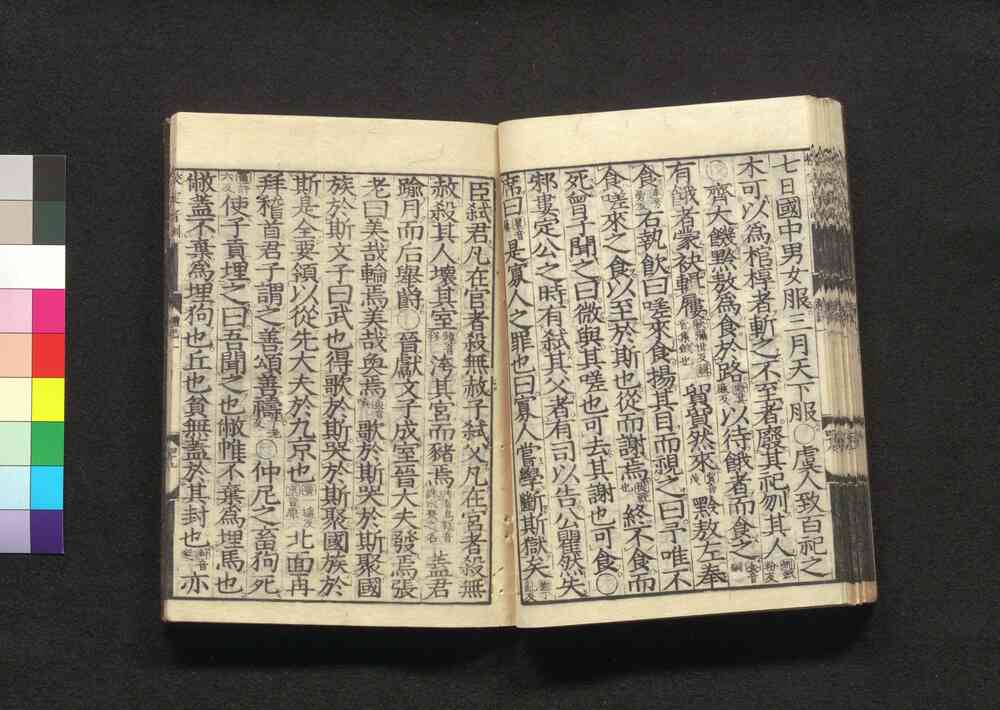 七日國中男女服三月天下服○虞人致百祀之
木可以爲棺椁者斬之不至者廢其祀刎其人
齊大饑黔敖爲食於路以待餓者而食之
有餓者蒙袂輯屨貿貿然來黔敖左奉
食右執飲曰嗟來食揚其目而視之曰予唯不
食嗟來之食以至於斯也從而謝焉終不食而
死曾子聞之曰微與其嗟也可去其謝也可食○
邾婁定公之時有弒其父者有司以告公瞿然失
席曰是寡人之罪也曰寡人嘗學斷斯獄矣
臣弒君凡在官者殺無赦子弒父凡在宮者殺無
赦殺其人壞其室洿其宮而豬焉蓋君
踰月而后舉爵○晉獻文子成室晉大夫發焉張
老曰美哉輪焉美哉奐焉歌於斯哭於斯聚國
族於斯文子曰武也得歌於斯哭於斯聚國族於
斯是全要領以從先大夫於九京也北面再
拜稽首君子謂之善頌善禱○仲尼之畜狗死
使子貢埋之曰吾聞之也敝帷不棄爲埋馬也
敝蓋不棄爲埋狗也丘也貧無蓋於其封也亦